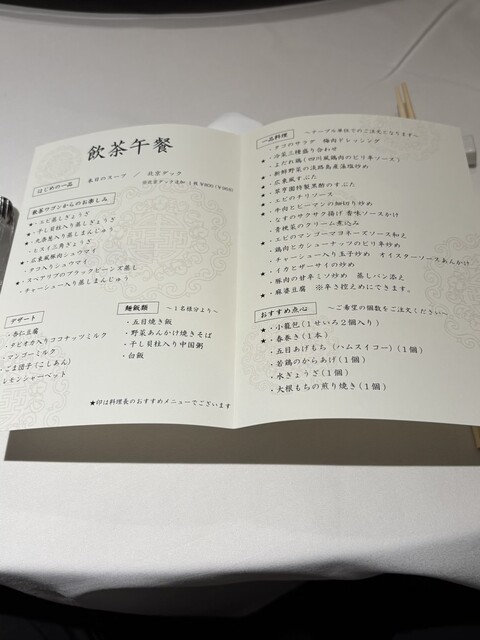 飲茶午餐
はじめの一品
本日のスープ / 北京ダック
飲茶ワゴンからのお楽しみ
★・エビ蒸しぎょうざ
・干し貝柱入り蒸しぎょうざ
★・九条葱入り蒸しまんじゅう
・ヒスイ三角ぎょうざ
★・広東風豚肉シュウマイ
・タコ入りシュウマイ
★・スペアリブのブラックビーンズ蒸し
・チャーシュー入り蒸しまんじゅう
デザート
・杏仁豆腐
・タピオカ入りココナッツミルク
・マンゴーミルク
・ごま団子(こしあん)
・レモンシャーベット
麺飯類 ~1名様分より~
・五目焼き飯
・野菜あんかけ焼きそば
・干し貝柱入り中国粥
・白飯
★印は料理長のおすすめメニューでございます
一品料理 ~テーブル単位でのご注文となります~
・タコのサラダ 梅肉ドレッシング
・冷菜三種盛り合わせ
★・よだれ鶏(四川風鶏肉のピリ辛ソース)
・新鮮野菜の淡路島産藻塩炒め
★・広東風すぶた
・翠亨園特製黒酢のすぶた
★・エビのチリソース
・牛肉とピーマンの細切り炒め
★・なすのサクサク揚げ 香味ソースかけ
・青梗菜のクリーム煮込み
★・エビのマンゴーマヨネーズソース和え
・鶏肉とカシューナッツのピリ辛炒め
・チャーシュー入り玉子炒め オイスターソースあんかけ
★・イカとザーサイの炒め
★・豚肉の甘辛ミソ炒め 蒸しパン添え
★・麻婆豆腐 ※辛さ控えめにできます。
おすすめ点心 ~ご希望の個数をご注文ください~
★・小籠包(1せいろ2個入り)
★・春巻き(1本)
・五目あげもち(ハムスイコー)(1個)
・若鶏のからあげ(1個)
・水ぎょうざ(1個)
・大根もちの煎り焼き(1個)